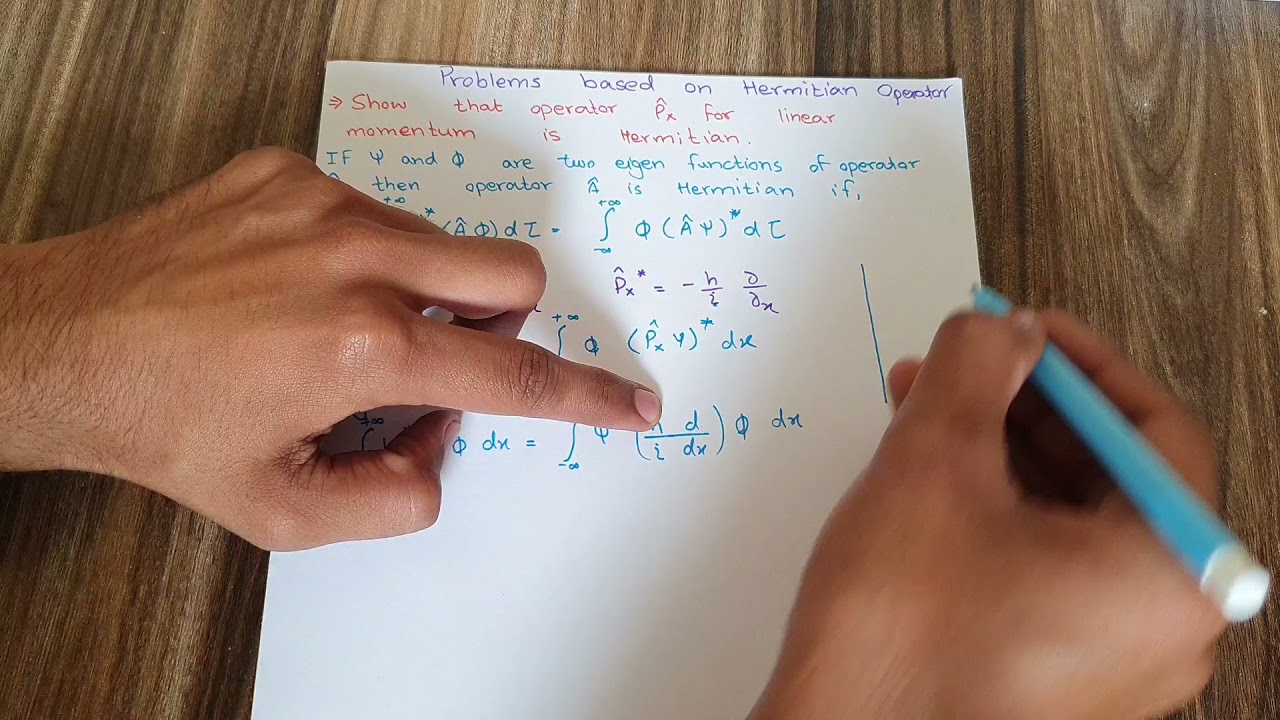 Problems based on Hermitian Operator
⇒ Show that operator P̂x for linear
momentum is Hermitian.
IF Ψ and Φ are two eigen functions of operator
then operator Â is Hermitian if,
+∞ * (Â Φ) dτ = ∫ +∞ -∞ Φ (Â Ψ)* dτ
P̂x* = - h/i ∂/∂x
+∞ ∫ Φ (P̂x Ψ)* dx
+∞ ∫ Φ dx = ∫ -∞ Ψ (h/i d/dx) Φ dx